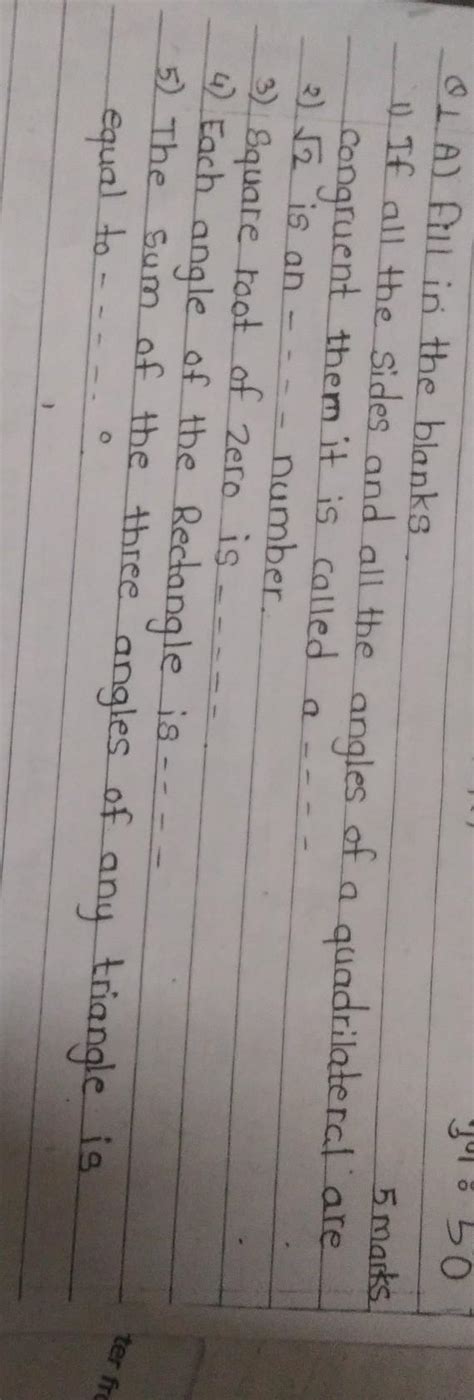 गुण : 50
Q 1 A) fill in the blanks 5 marks
1) If all the sides and all the angles of a quadrilateral are
congruent them it is called a ----
2) √2 is an ---- number.
3) Square root of zero is -----
4) Each angle of the Rectangle is ----
5) The sum of the three angles of any triangle is
equal to -----°
ter fro